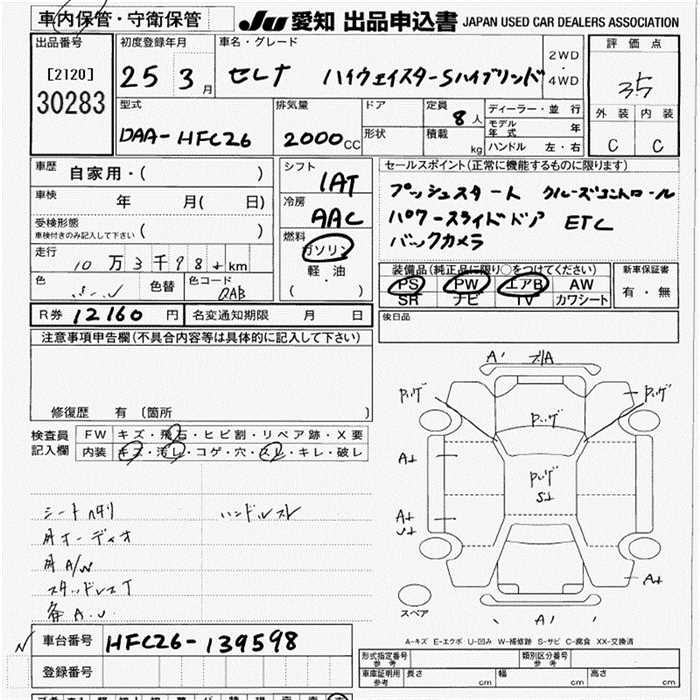 車内保管・守衛保管
JU 愛知 出品申込書 JAPAN USED CAR DEALERS ASSOCIATION
出品番号 初度登録年月 車名・グレード 評価点
[2120] 25 3月 セレナ ハイウェイスターSハイブリッド 2WD・4WD 3.5
30283 型式 排気量 ドア 定員 8人 ディーラー・並行 外装 内装
DAA-HFC26 2000CC 形状 積載 kg モデル年式 年 C C
ハンドル 左・右
車歴 自家用・( ) シフト 1AT セールスポイント(正常に機能するものに限ります)
車検 年 月( 日) 冷房 AAC プッシュスタート クルーズコントロール
受検形態 ( ) パワースライドドア ETC
車検付きのみ記入して下さい 燃料 バックカメラ
走行 10万3千98 km ガソリン 装備品(純正品に限り○をつけてください) 新車保証書
軽・油 PS PW エアB AW 有・無
色 色替 色コード DAB ( ・ ) SR ナビ TV カワシート
R券 12160円 名変通知期限 月 日 後日品
注意事項申告欄(不具合内容等は具体的に記入して下さい)
修復歴 有 〔箇所 〕
検査員 FW キズ・飛石・ヒビ割・リペア跡・X要
記入欄 内装 キズ・汚レ・コゲ・穴・スレ・キレ・破レ
A'
シートヘタリ ハンドルスレ
オーディオ
A/W
スペア
A-キズ E-エクボ U-凹み W-補修跡 S-サビ C-腐食 XX-交換済
車台番号 HFC26-139598
形式指定番号 参考 類別区分番号 参考
登録番号 車庫証明用 参考 長さ cm 幅 cm 高さ cm